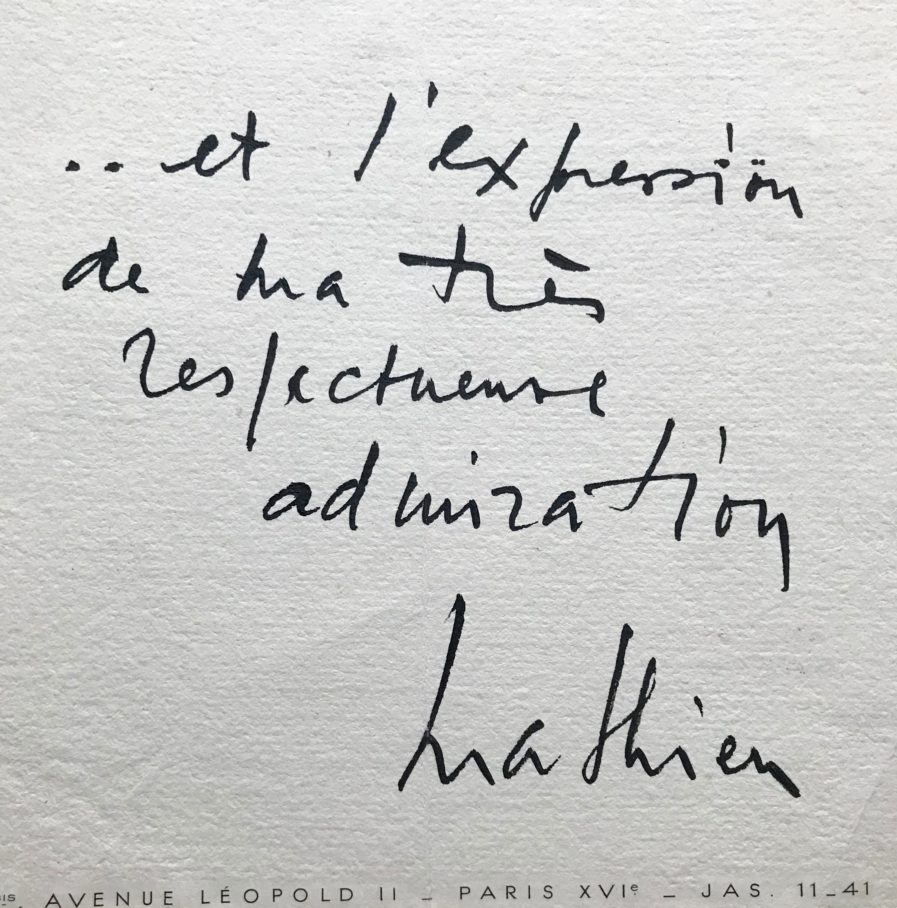 .. et l'expression
de ma très
respectueuse
admiration
Mathieu
BIS. AVENUE LÉOPOLD II _ PARIS XVIe _ JAS. 11_41